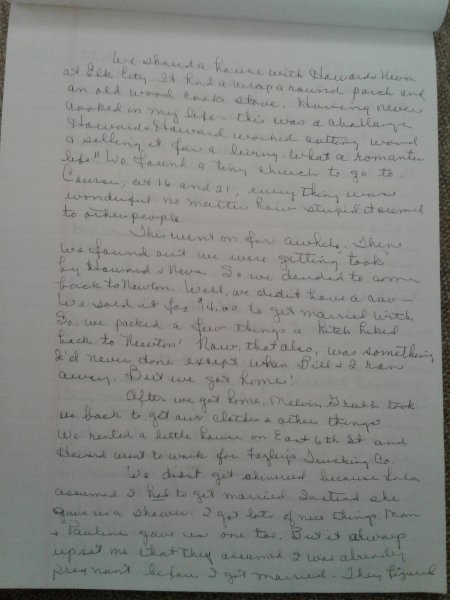 We shared a house with Howard & Neva
at Elk City. It had a wrap around porch and
an old wood cook stove. Having never
cooked in my life - this was a challange
Howard & Howard worked cutting wood
& selling it for a living. What a romantic
life!! We found a tiny church to go to.
Course, at 16 and 21, everything was
wonderful no matter how stupid it seemed
to other people.
This went on for awhile. Then
we found out we were getting "took"
by Howard & Neva. So we decided to come
back to Newton. Well, we didn't have a car -
We sold it for $4.00 to get married with
So, we packed a few things & hitch hiked
back to Newton! Now, that also, was something
I'd never done except when Bill & I ran
away. But we got home!
After we got home, Melvin Grubb took
us back to get our clothes & other things
We rented a little house on East 6th St and
Howard went to work for Trucking Co.
We didn't get shivered because
assumed I had to get married. Instead she
gave us a shower. I got lots of nice things. Mom
& Pauline gave us one too. But it always
upset me that they assumed I was already
pregnant before I got married. They figured